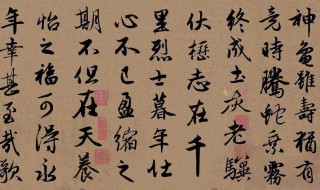 神龜雖壽猶有
竟時騰蛇乘霧
終成土灰老驥
伏櫪志在千
里烈士暮年壮
心不已盈縮之
期不但在天養
怡之福可得永
年幸甚至哉歌